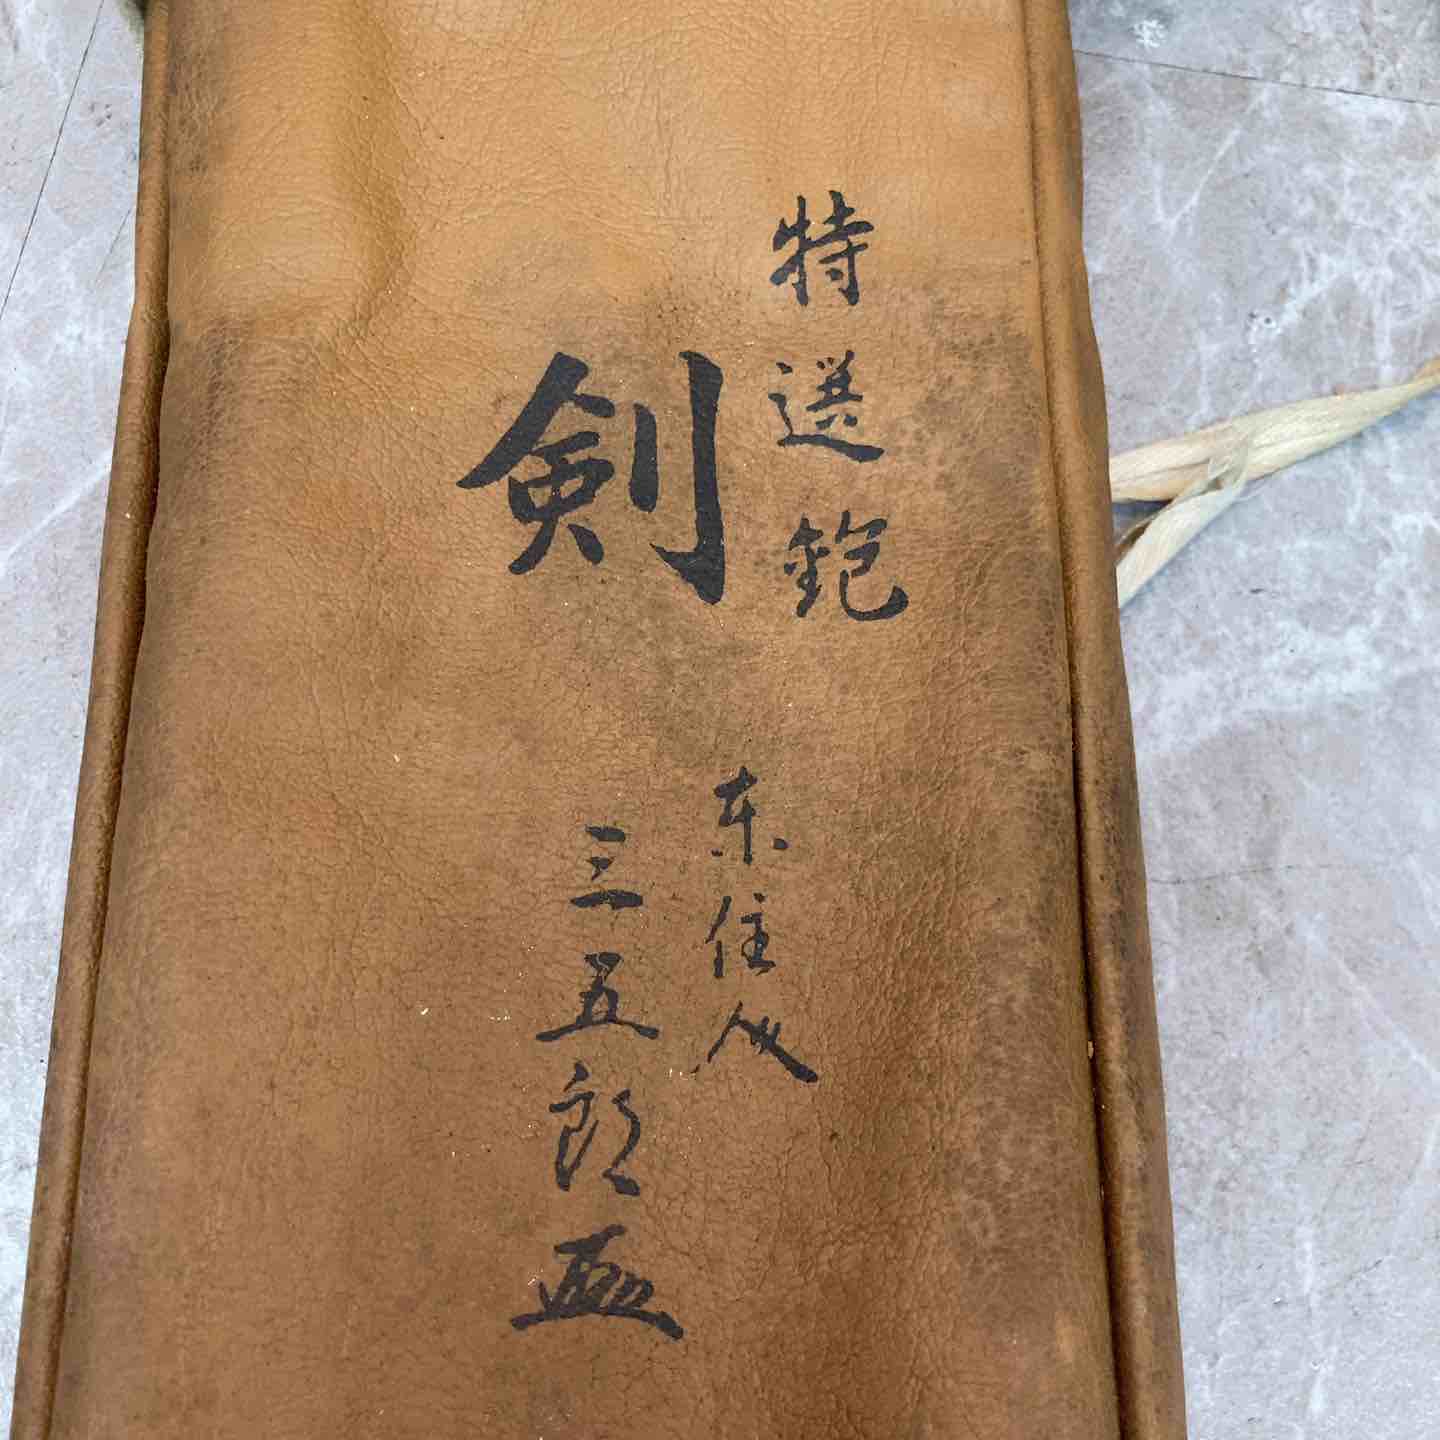 特選鉋
剣
东住人
三五郎